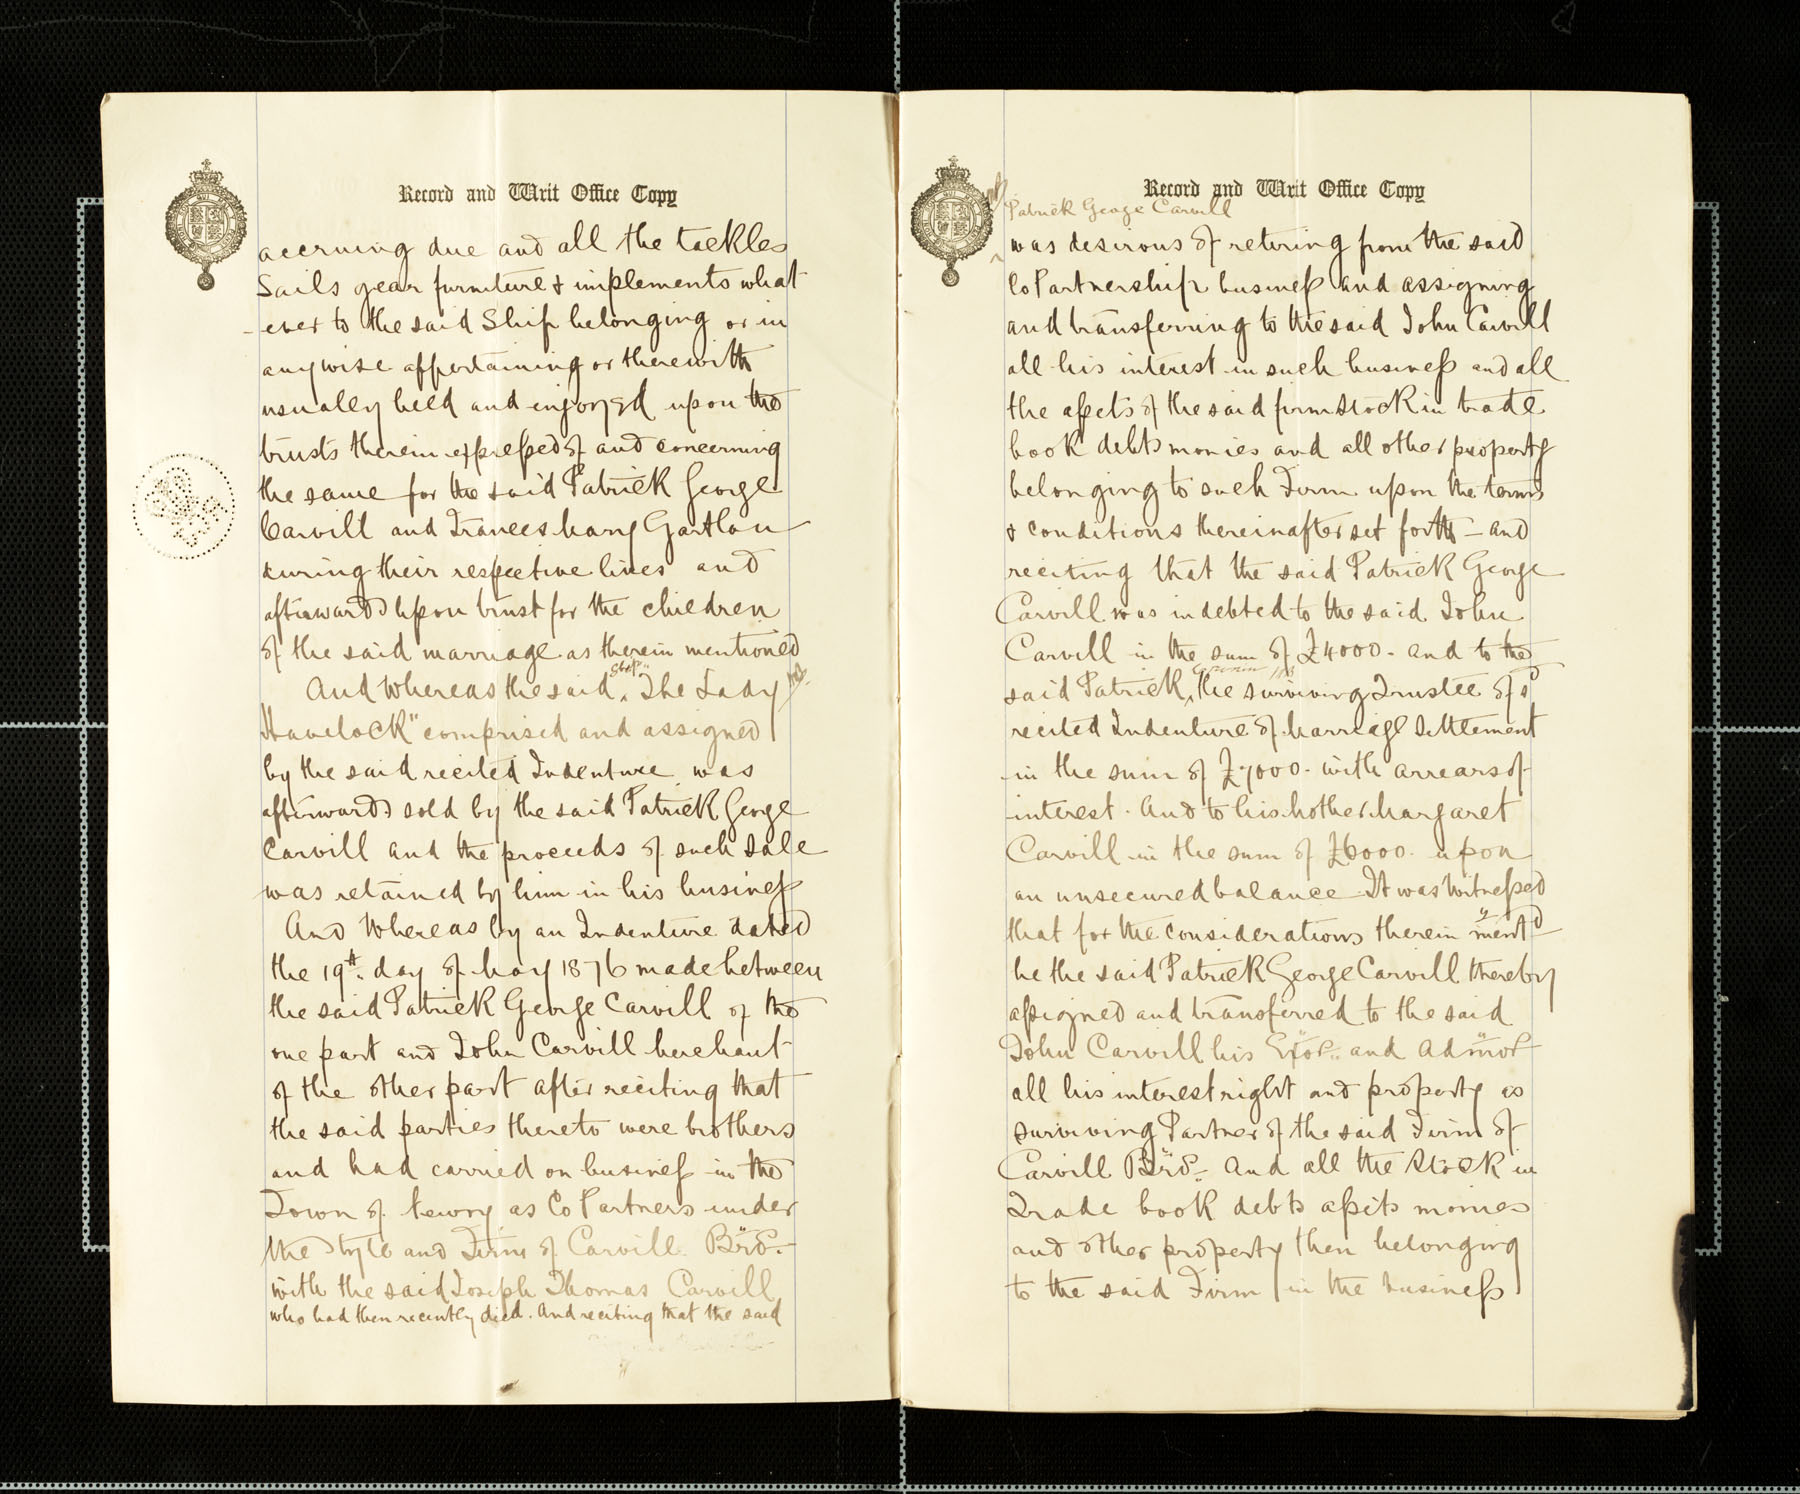 Record and Writ Office Copy
accruing due and all the tackles
Sails gear furniture & implements what
-ever to the said Ship belonging or in
anywise appertaining or therewith
usually held and enjoyed upon the
trusts therein expressed of and concerning
the same for the said Patrick George
Carvill and Frances Mary Gartlan
during their respective lives and
afterwards upon trust for the children
of the said marriage as therein mentioned
And Whereas the said Ship "The Lady
Havelock" comprised and assigned
by the said recited Indenture was
afterwards sold by the said Patrick George
Carvill and the proceeds of such sale
was retained by him in his business
And Whereas by an Indenture dated
the 19th day of May 1876 made between
the said Patrick George Carvill of the
one part and John Carvill Merchant
of the other part after reciting that
the said parties thereto were brothers
and had carried on business in the
Town of Newry as Co Partners under
the style and Firm of Carvill Bros.
with the said Joseph Thomas Carvill
who had then recently died. And reciting that the said
Record and Writ Office Copy
Patrick George Carvill
was desirous of retiring from the said
Co Partnership business and assigning
and transferring to the said John Carvill
all his interest in such business and all
the assets of the said firm Stock in trade
book debts monies and all other property
belonging to such Firm upon the terms
& conditions thereinafter set forth – and
reciting that the said Patrick George
Carvill was indebted to the said John
Carvill in the sum of £4000 - and to the
said Patrick the surviving Trustee of sd
recited Indenture of Marriage Settlement
in the sum of £7000 - with arrears of
interest. And to his Mother Margaret
Carvill in the sum of £6000 - upon
an unsecured balance It was Witnessed
that for the considerations therein mentd
he the said Patrick George Carvill thereby
assigned and transferred to the said
John Carvill his Exors. and Admors
all his interest right and property as
surviving Partner of the said Firm of
Carvill Bros. And all the Stock in
Trade book debts assets monies
and other property then belonging
to the said Firm in the business